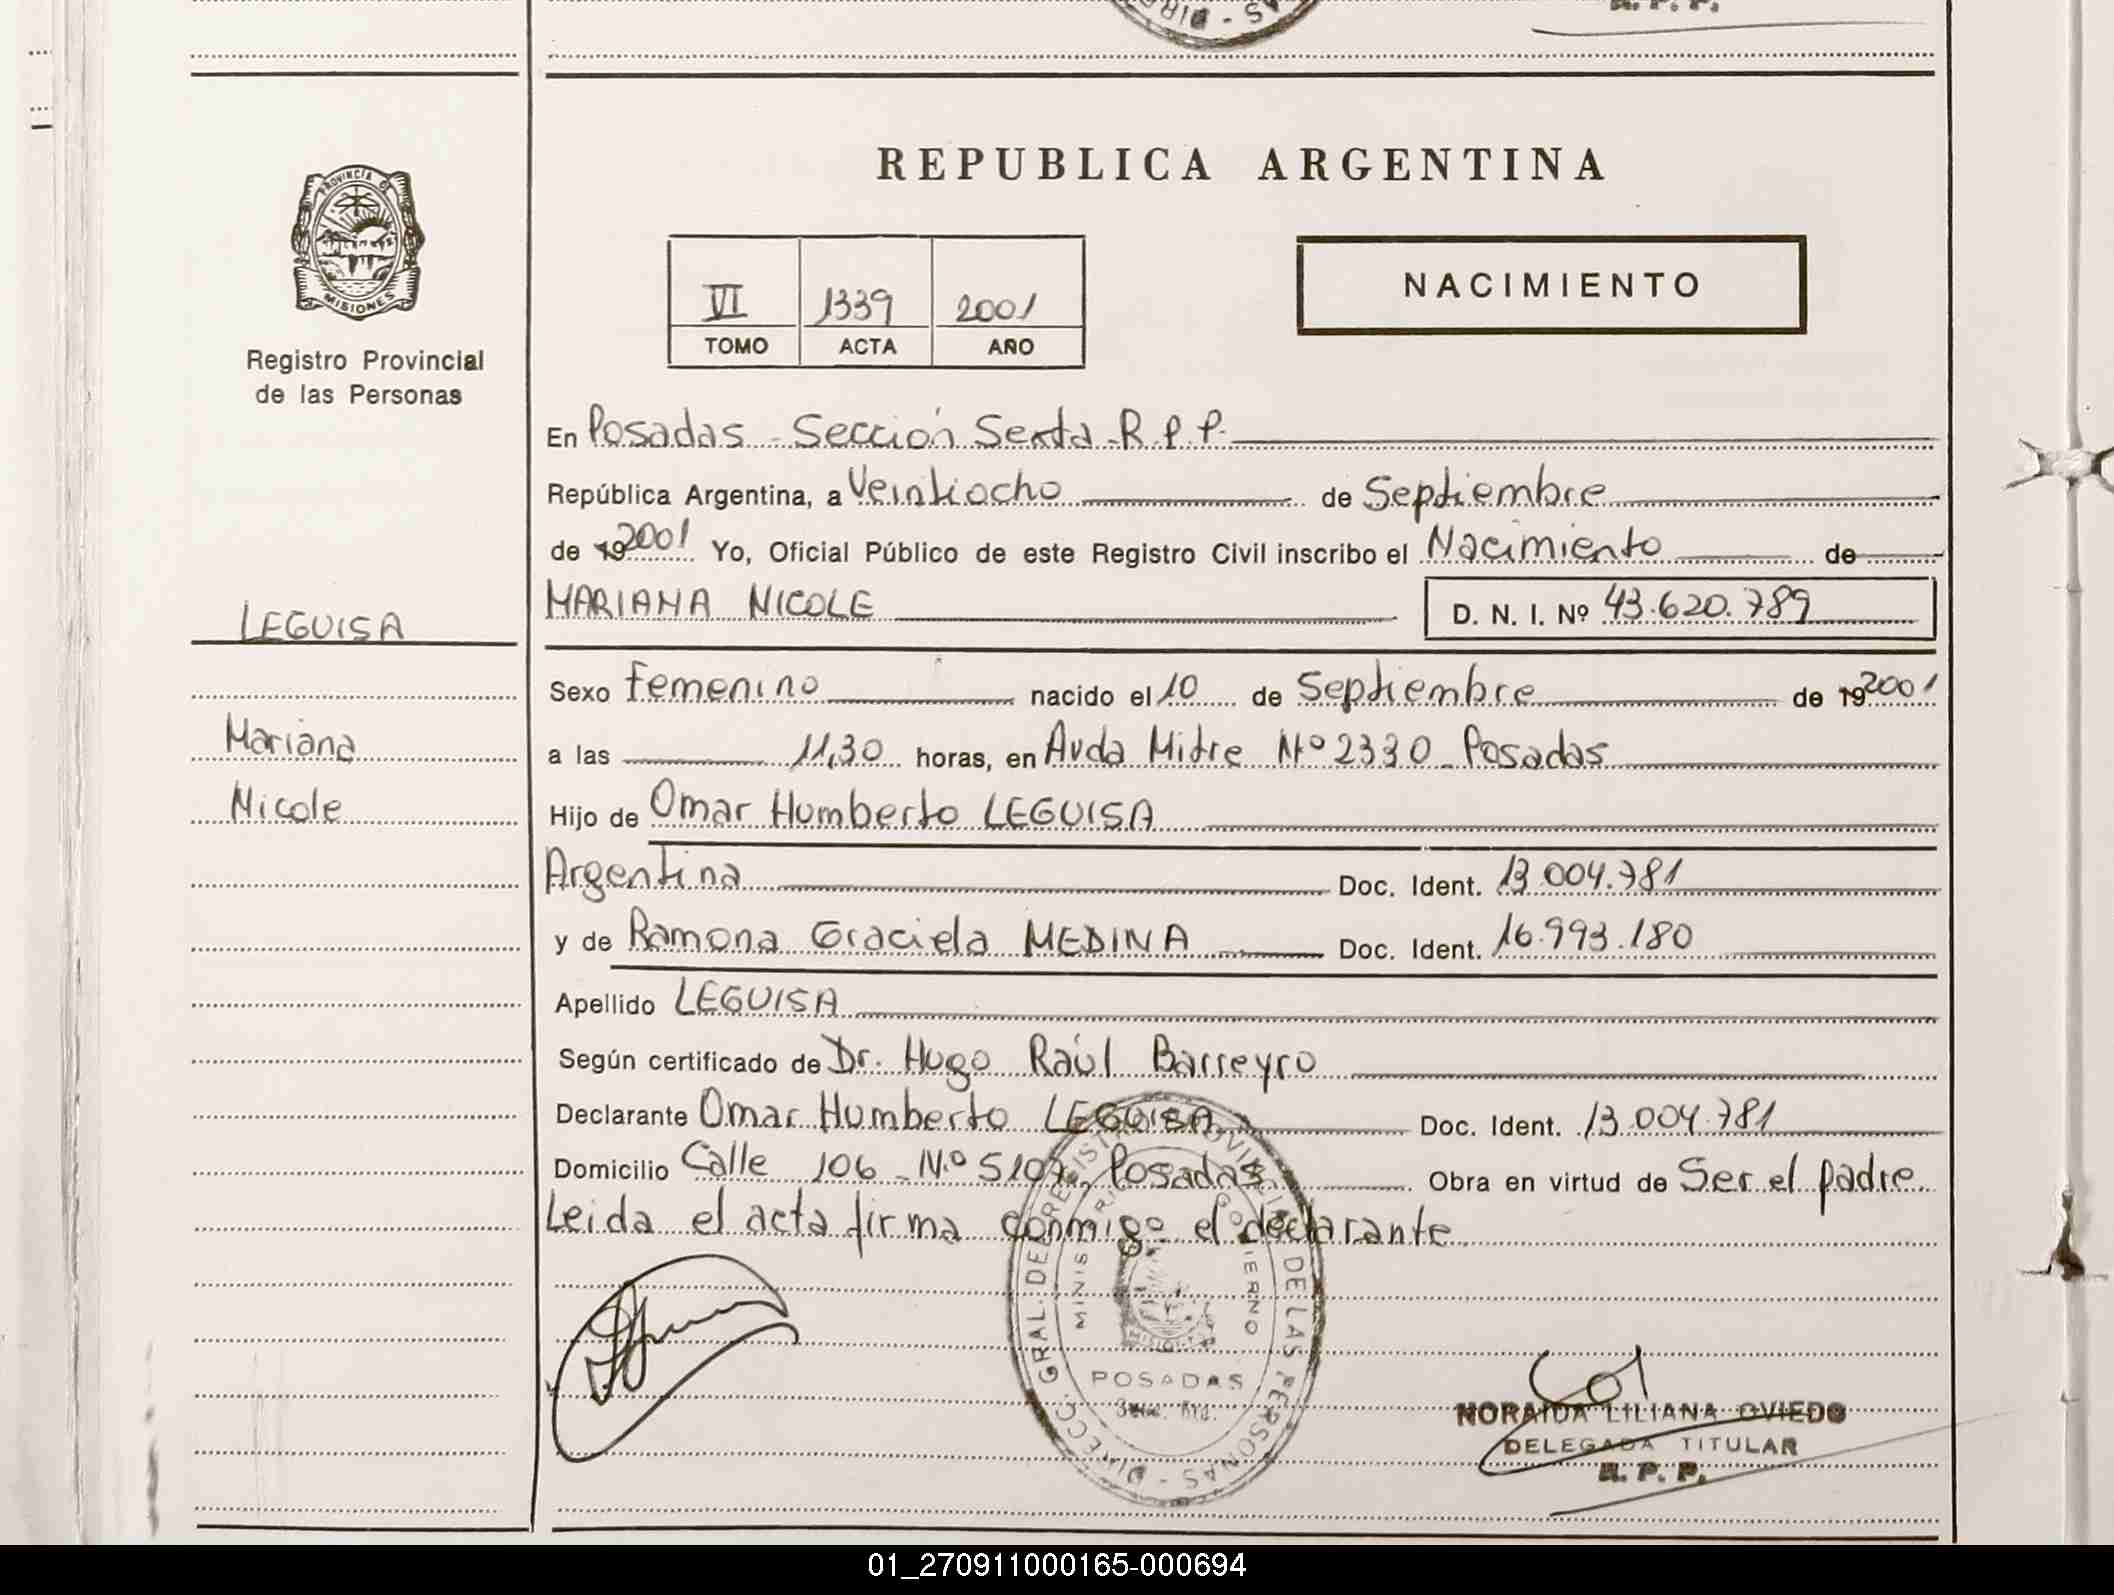 R. P. P.
PROVINCIA DE
MISIONES
Registro Provincial
de las Personas
LEGUISA
Mariana
Nicole
REPUBLICA ARGENTINA
VI 1339 2001
TOMO ACTA AÑO
NACIMIENTO
En Posadas - Sección Sexta - R. P. P.
República Argentina, a Veintiocho de Septiembre
de 19 2001 Yo, Oficial Público de este Registro Civil inscribo el Nacimiento de
MARIANA NICOLE D. N. I. Nº 43.620.789
Sexo Femenino nacido el 10 de Septiembre de 19 2001
a las 11,30 horas, en Avda Mitre Nº 2330 - Posadas
Hijo de Omar Humberto LEGUISA
Argentina Doc. Ident. 13.004.781
y de Ramona Graciela MEDINA Doc. Ident. 16.993.180
Apellido LEGUISA
Según certificado de Dr. Hugo Raúl Barreyro
Declarante Omar Humberto LEGUISA Doc. Ident. 13.004.781
Domicilio Calle 106 - Nº 5107, Posadas Obra en virtud de Ser el padre.
Leida el acta firma conmigo el declarante
DIRECC. GRAL. DE REGISTRO PROVINCIAL DE LAS PERSONAS
GOBIERNO
POSADAS
NORAIDA LILIANA OVIEDO
DELEGADA TITULAR
R. P. P.
01_270911000165-000694